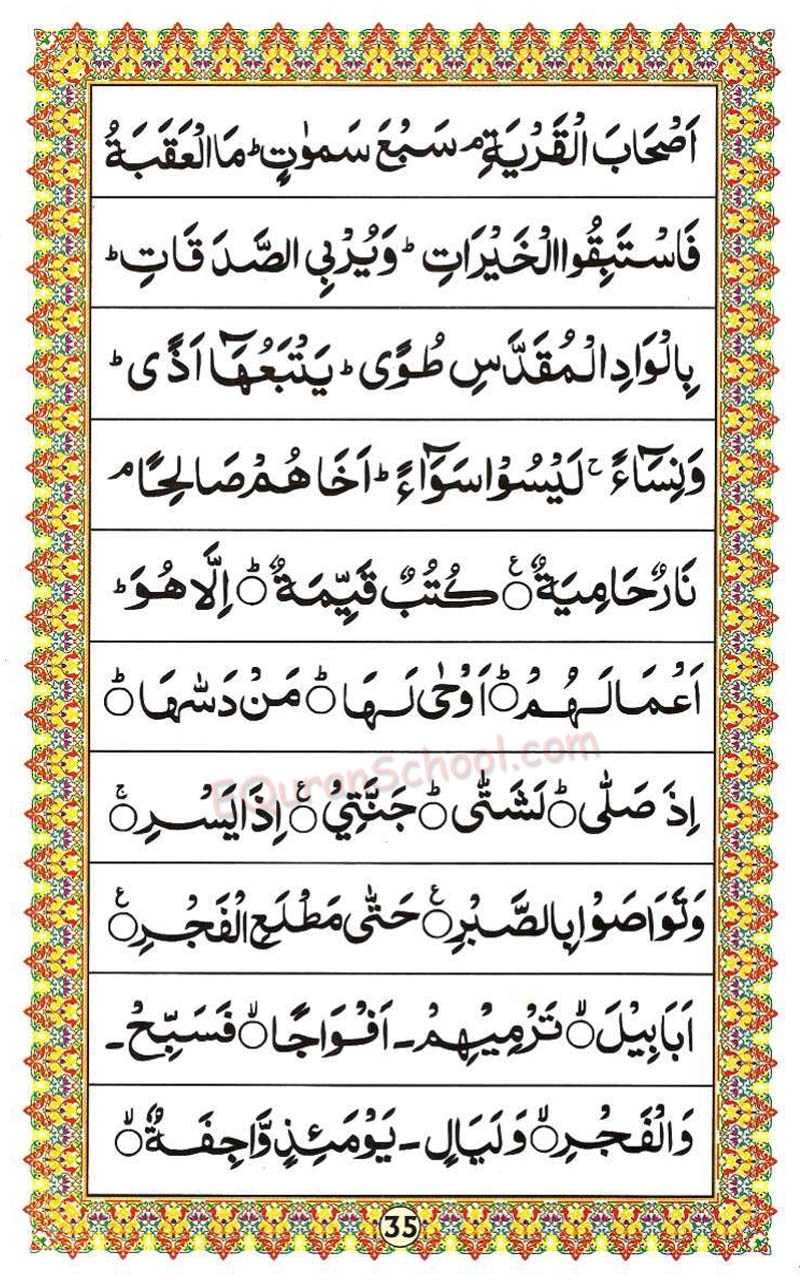 اَصْحَابَ الْقَرْيَةِ ۘ سَبْعَ سَمٰوٰتٍ ؕ مَا الْعَقَبَةُ
فَاسْتَبِقُوا الْخَيْرَاتِ ؕ وَيُرْبِي الصَّدَقَاتِ ؕ
بِالْوَادِ الْمُقَدَّسِ طُوًى ؕ يَتْبَعُهَاۤ اَذًى ؕ
وَنِسَآءً ۚ لَيْسُوْا سَوَآءً ؕ اَخَاهُمْ صَالِحًا ۘ
نَارٌ حَامِيَةٌ ۝ع كُتُبٌ قَيِّمَةٌ ۝ؕ اِلَّا هُوَ ؕ
اَعْمَالَهُمْ ۝ؕ اَوْحٰى لَهَا ۝ؕ مَنْ دَسّٰىهَا ۝ؕ
EQuranSchool.com
اِذَ صَلّٰى ۝ؕ لَشَتّٰى ۝ؕ جَنَّتِيْ ۝ع اِذَا يَسْرِ ۝ۚ
وَتَوَاصَوْا بِالصَّبْرِ ۝ع حَتّٰى مَطْلَعِ الْفَجْرِ ۝ع
اَبَابِيْلَ ۝ۙ تَرْمِيْهِمْ ۔ اَفْوَاجًا ۝ۙ فَسَبِّحْ ۔
وَالْفَجْرِ ۝ۙ وَلَيَالٍ ۔ يَوْمَئِذٍ وَّاجِفَةٌ ۝ۙ
35